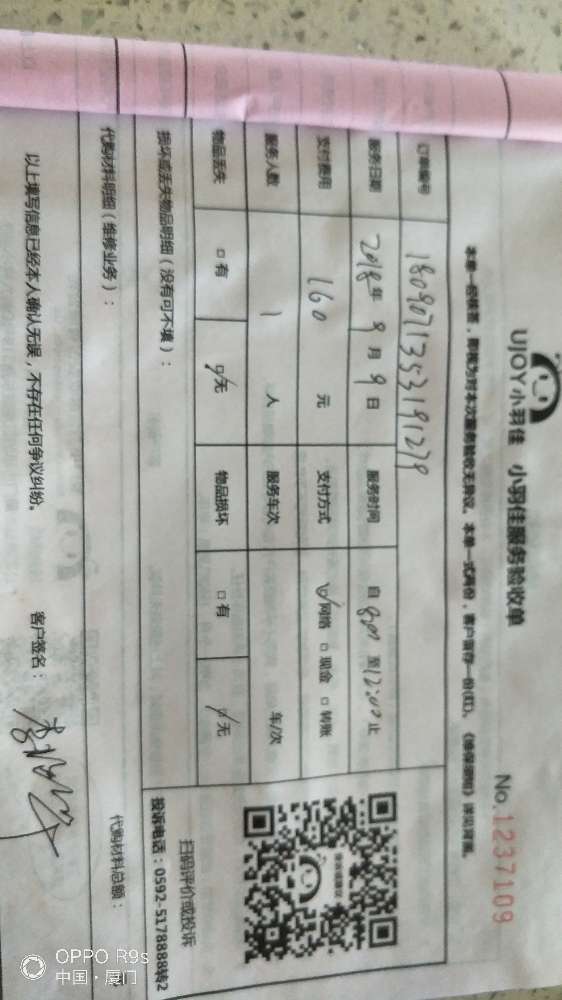 UJOY小羽佳 小羽佳服务验收单
No.1237109
本单一经核签，即视为对本次服务验收无异议。本单一式两份，客户留存一份(红)。《维保说明》详见背面。
订单编号
服务日期 2018年9月9日 服务时间 自8:00至12:00止
支付费用 160元 支付方式 ☑网络 □现金 □转账
服务人数 1人 服务车次 车/次
物品丢失 □有 ☑无 物品损坏 □有 ☑无
损坏或丢失物品明细（没有可不填）：
扫码评价或投诉
投诉电话：0592-5178888转2
代购材料明细（维修业务）：
代购材料总额：
以上填写信息已经本人确认无误，不存在任何争议纠纷。 客户签名：
OPPO R9s
中国·厦门